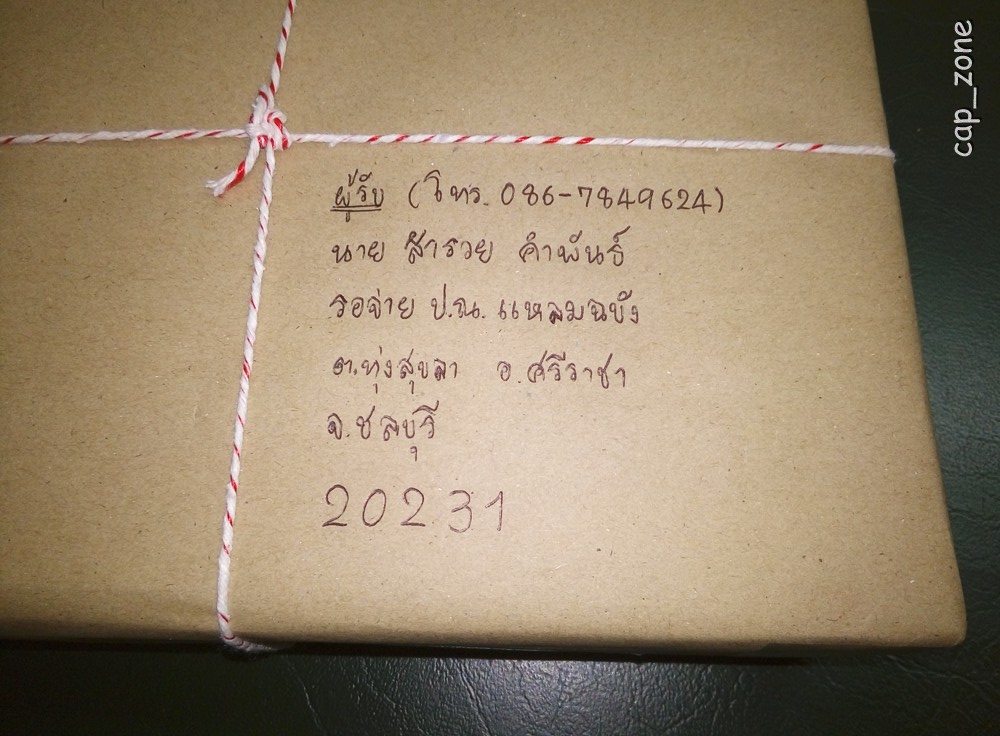 ผู้รับ (โทร. 086-7849624)
นาย สำรวย คำพันธ์
รอจ่าย ป.ณ. แหลมฉบัง
ต.ทุ่งสุขลา อ.ศรีราชา
จ.ชลบุรี
20231
cap_zone